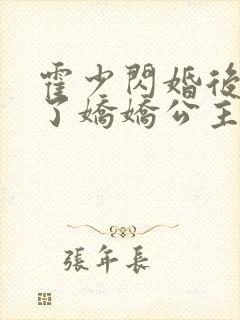 霍少閃婚後
了嬌嬌公主
張年長